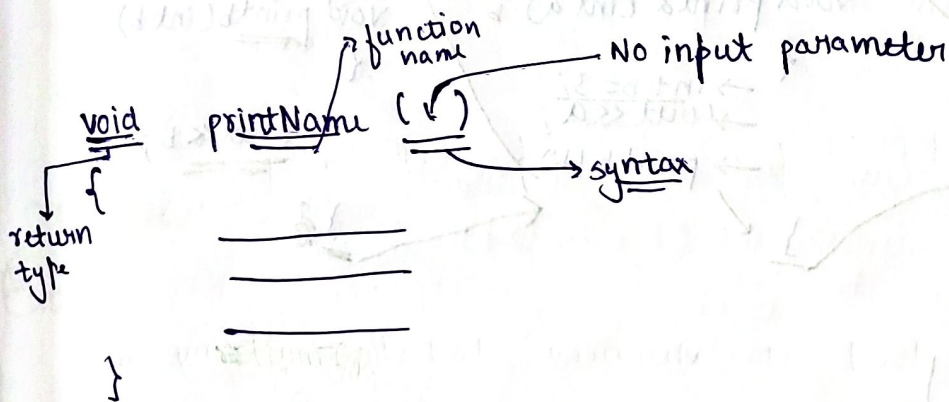 function
name
No input parameter
void printName ( )
syntax
{
return
type
}